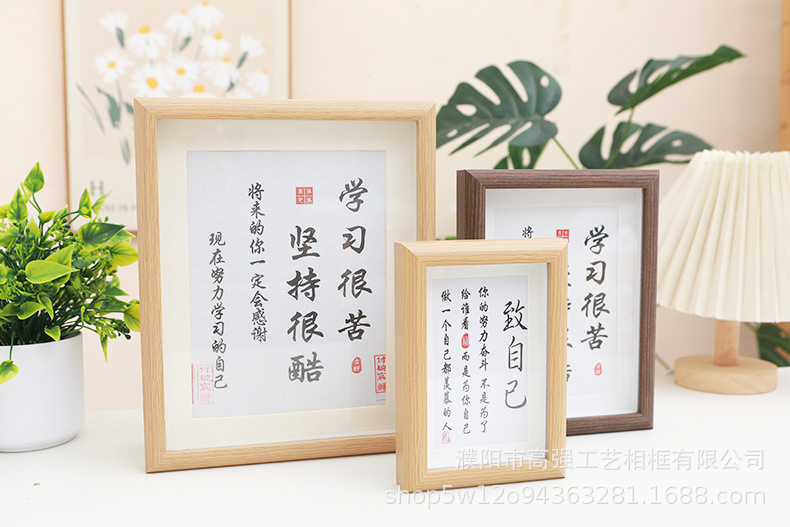 学习很苦
坚持很酷
将来的你一定会感谢
现在努力学习的自己
致自己
你的努力奋斗 不是为了
给谁看 而是为你自己
做一个自己都羡慕的人
学习很苦
濮阳市高强工艺相框有限公司
shop5w12o94363281.1688.com